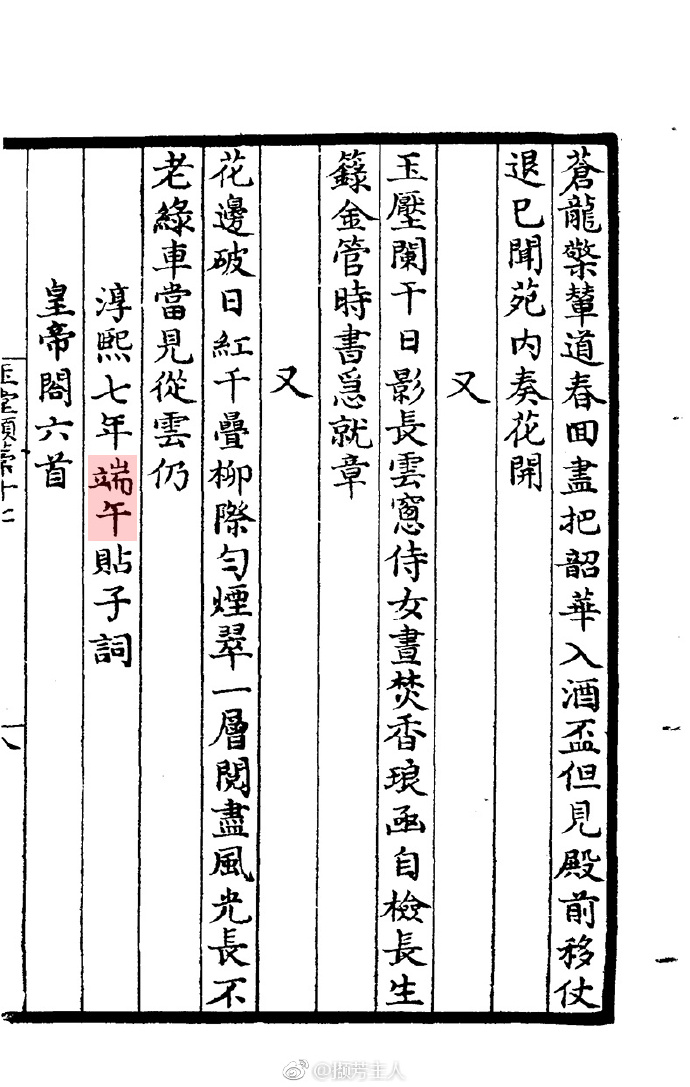 蒼龍檠輦道春囬盡把韶華入酒盃但見殿前移仗
退已聞苑内奏花開
又
玉壓闌干日影長雲窻侍女晝焚香琅函自檢長生
籙金管時書急就章
又
花邊破日紅千疊柳際匀煙翠一層閱盡風光長不
老綠車當見從雲仍
淳熙七年端午貼子詞
皇帝閣六首
@撷芳主人